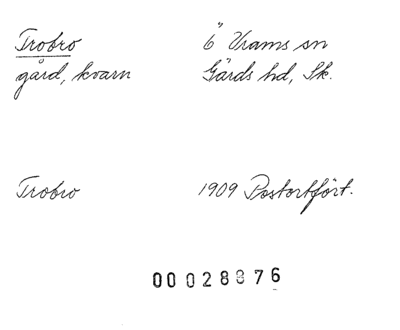 Trobro 6" Vrams sn
gård, kvarn Gärds hd, Sk.
Trobro 1909 Postortfört.
00028876